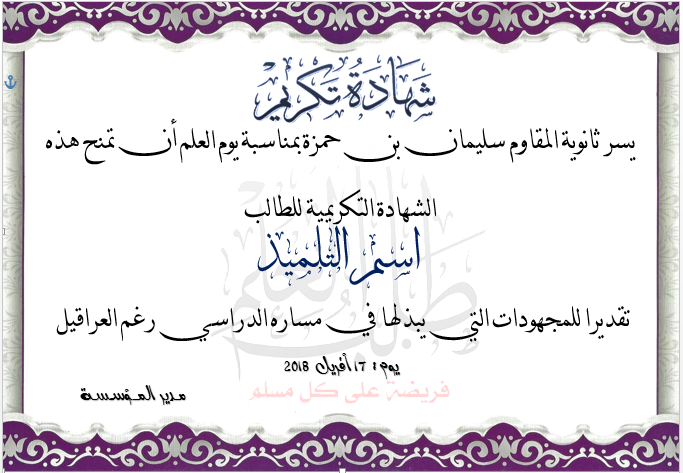 شَهَادَةُ تَكْرِيمٍ
يسر ثانوية المقاوم سليمان بن حمزة بمناسبة يوم العلم أن تمنح هذه
الشهادة التكريمية للطالب
اسم التلميذ
طلب العلم
تقديرا للمجهودات التي يبذلها في مساره الدراسي رغم العراقيل
يوم: 17 أفريل 2018
فريضة على كل مسلم
مدير المؤسسة